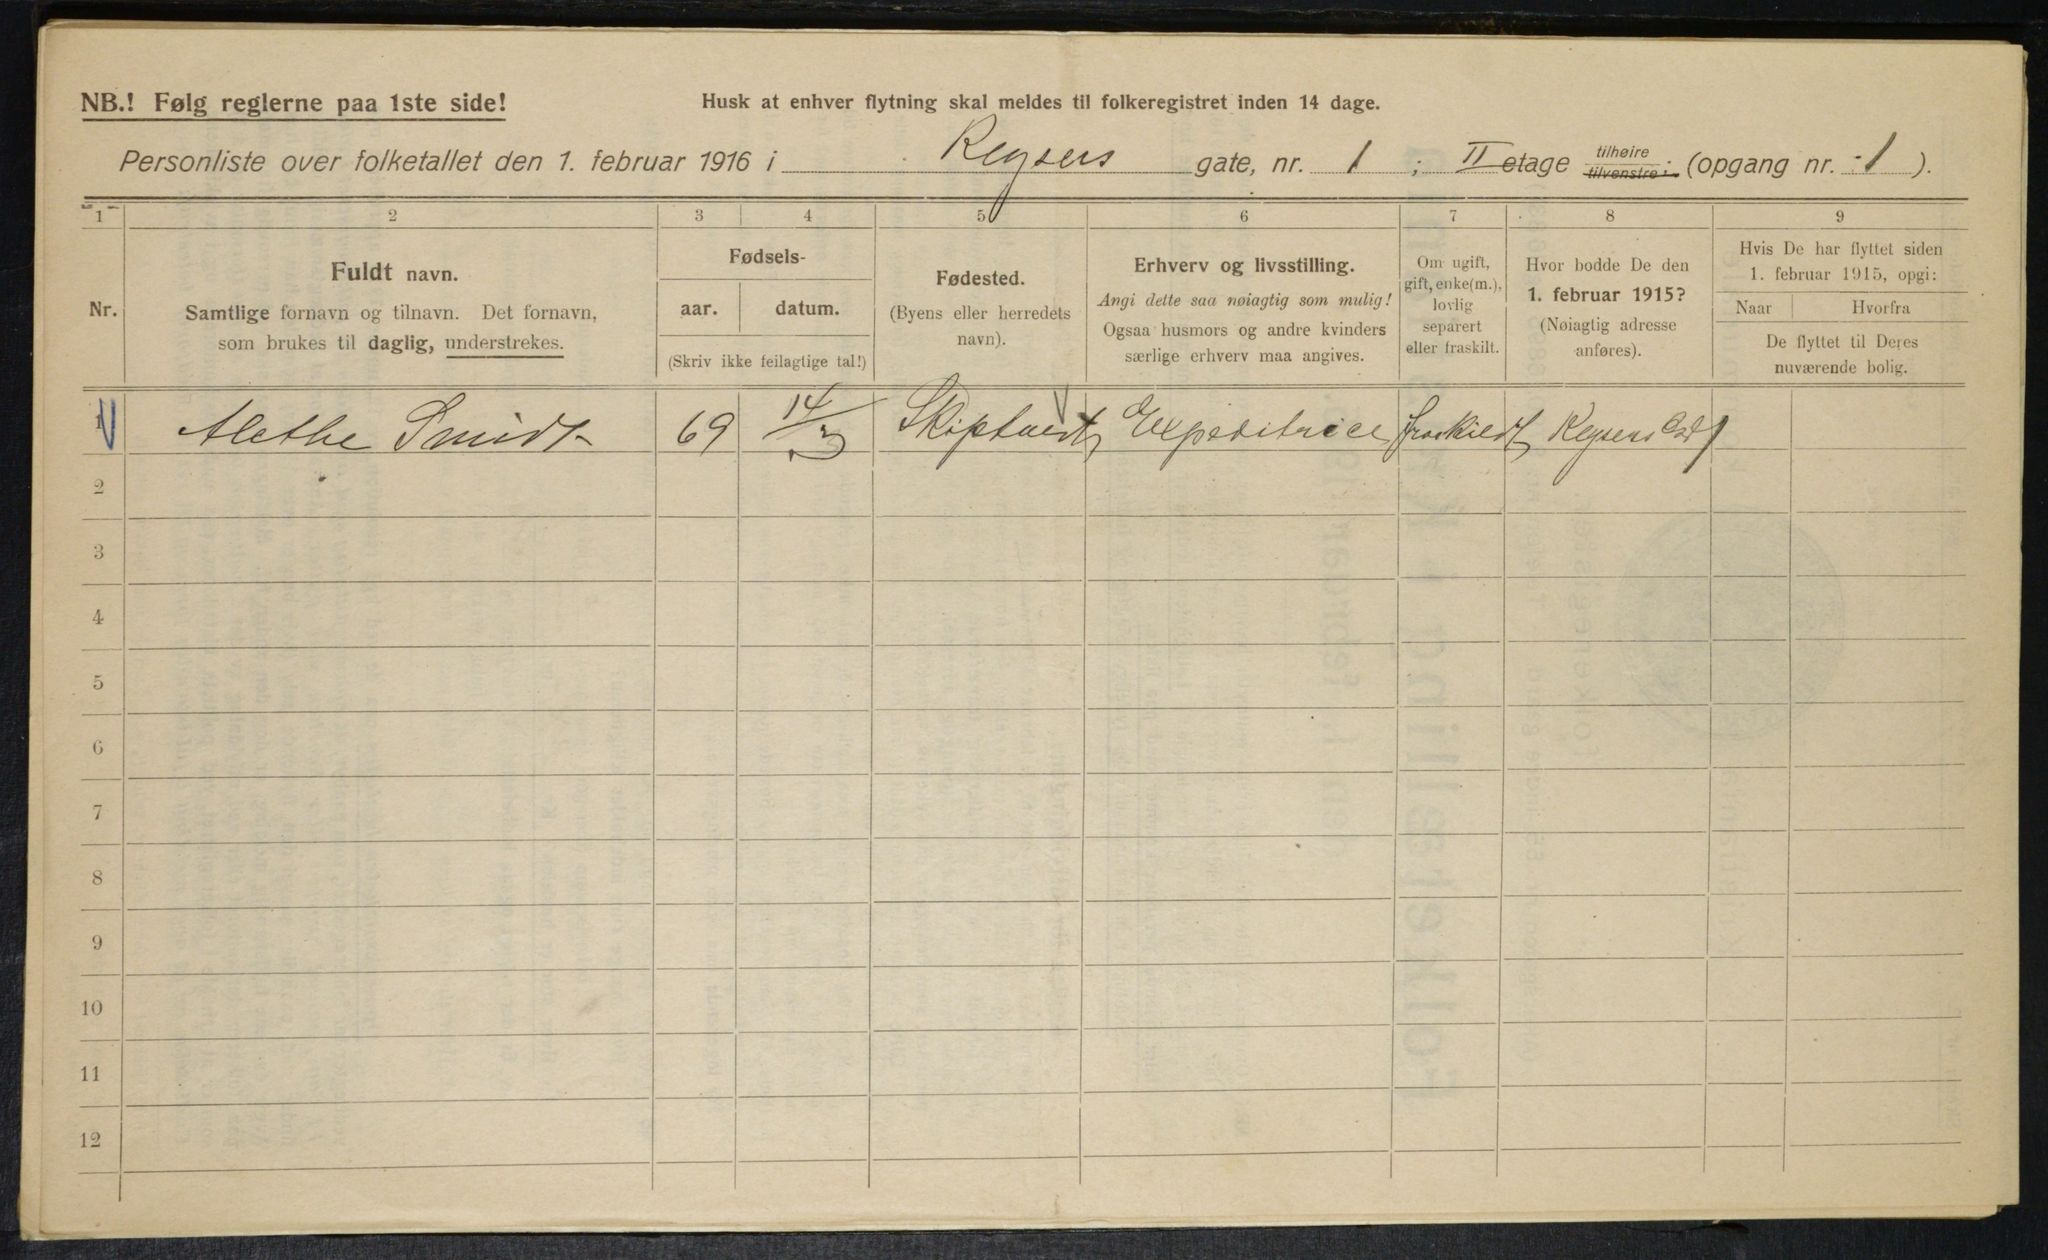 NB.! Følg reglerne paa 1ste side!
Husk at enhver flytning skal meldes til folkeregistret inden 14 dage.
Personliste over folketallet den 1. februar 1916 i Keysers gate, nr. 1 ; II etage tilhøire tilvenstre ; (opgang nr. 1 ).
1 2 3 4 5 6 7 8 9
Nr.
Fuldt navn.
Samtlige fornavn og tilnavn. Det fornavn,
som brukes til daglig, understrekes.
Fødsels-
aar. datum.
(Skriv ikke feilagtige tal!)
Fødested.
(Byens eller herredets
navn).
Erhverv og livsstilling.
Angi dette saa nøiagtig som mulig!
Ogsaa husmors og andre kvinders
særlige erhverv maa angives.
Om ugift,
gift, enke(m.),
lovlig
separert
eller fraskilt.
Hvor bodde De den
1. februar 1915?
(Nøiagtig adresse
anføres).
Hvis De har flyttet siden
1. februar 1915, opgi:
Naar Hvorfra
De flyttet til Deres
nuværende bolig.
1 Alethe Smidt 69 14/3 Skiptvedt Expeditrice fraskildt Keysers Gd 1
2
3
4
5
6
7
8
9
10
11
12